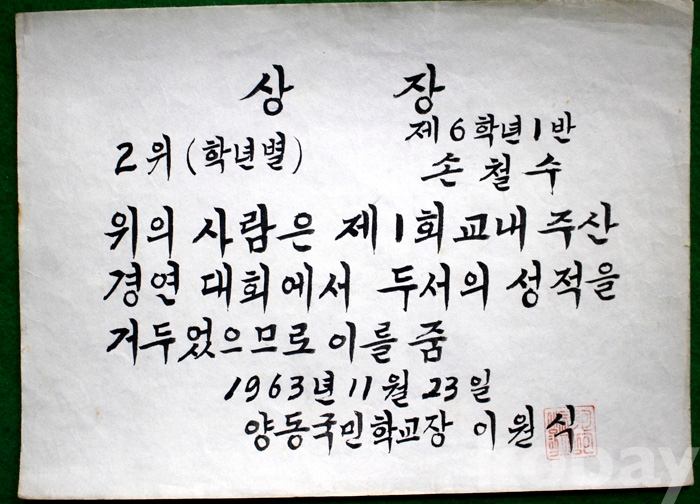 상 장
제6학년1반
2위(학년별)
손철수
위의 사람은 제1회교내주산
경연 대회에서 두서의 성적을
거두었으므로 이를 줌
1963년 11월 23일
양동국민학교장 이원식
kobay